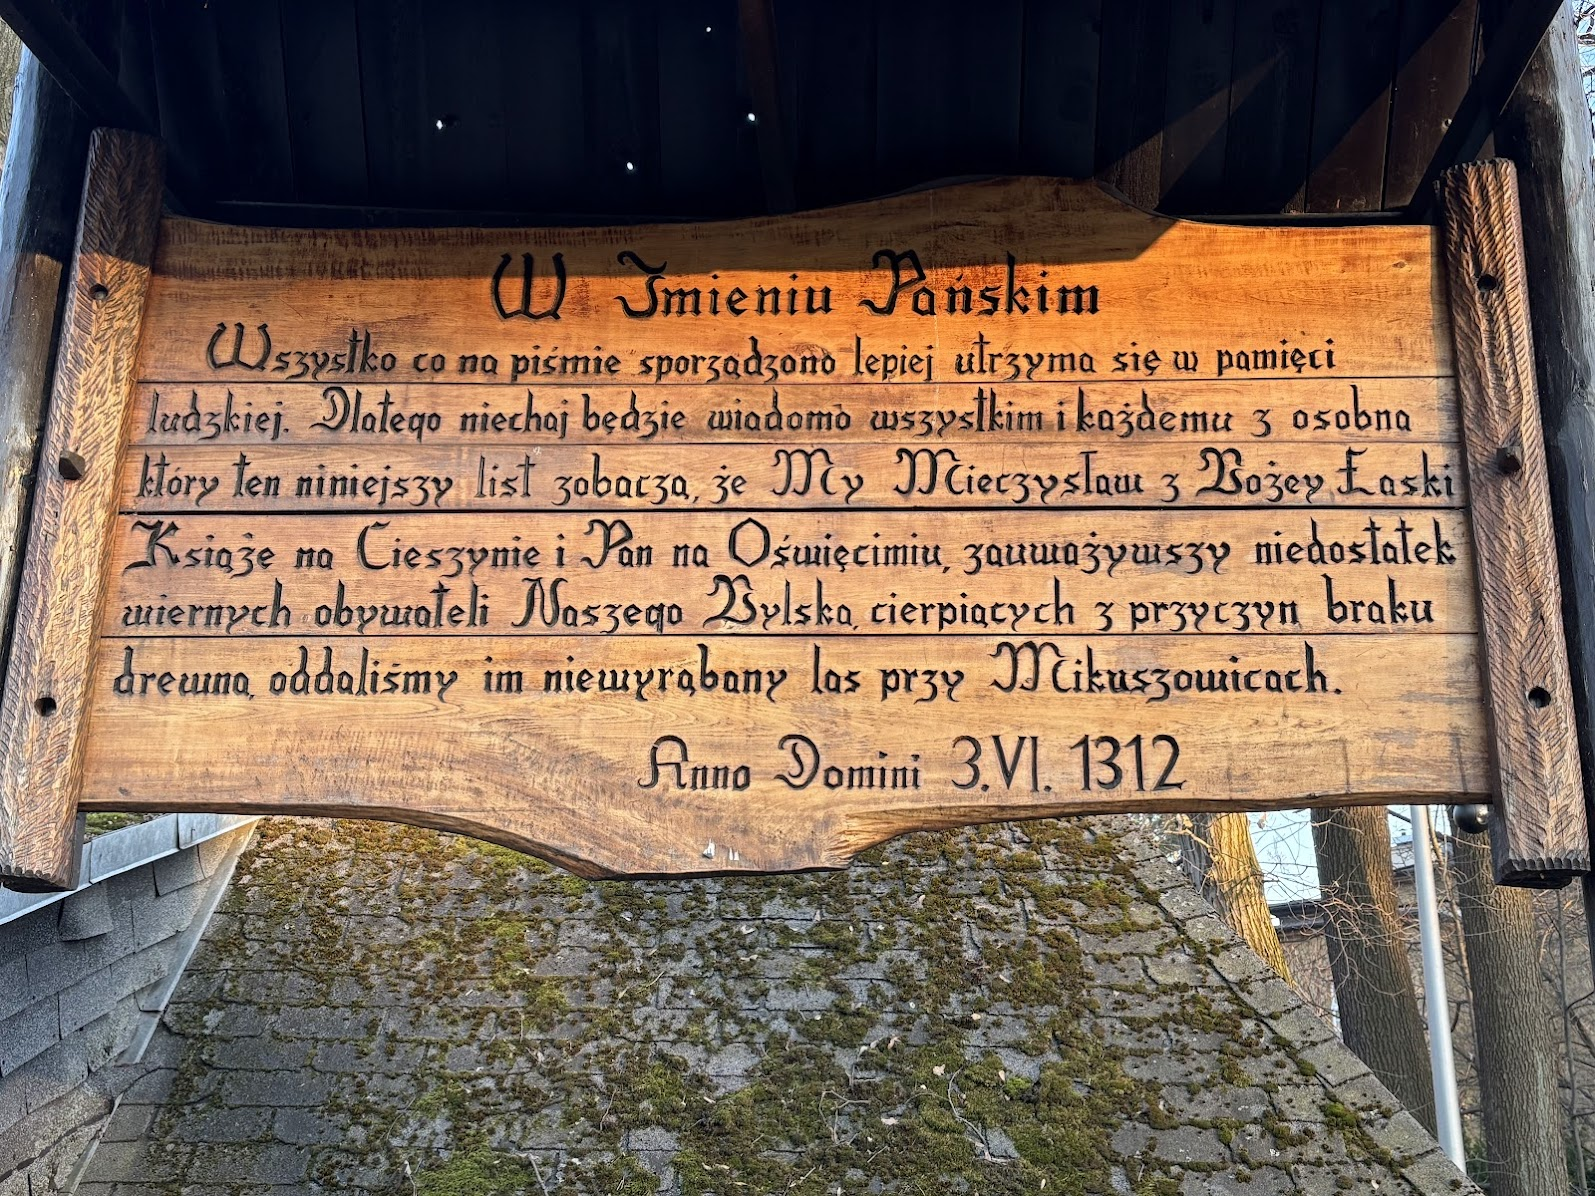 W Imieniu Pańskim
Wszystko co na piśmie sporządzono lepiej utrzyma się w pamięci
ludzkiej. Dlatego niechaj będzie wiadomo wszystkim i każdemu z osobna
który ten niniejszy list zobacza, że My Mieczysław z Bożey Łaski
Książe na Cieszynie i Pan na Oświęcimiu, zauważywszy niedostatek
wiernych obywateli Naszego Bylska, cierpiących z przyczyn braku
drewna, oddaliśmy im niewyrąbany las przy Mikuszowicach.
Anno Domini 3.VI. 1312